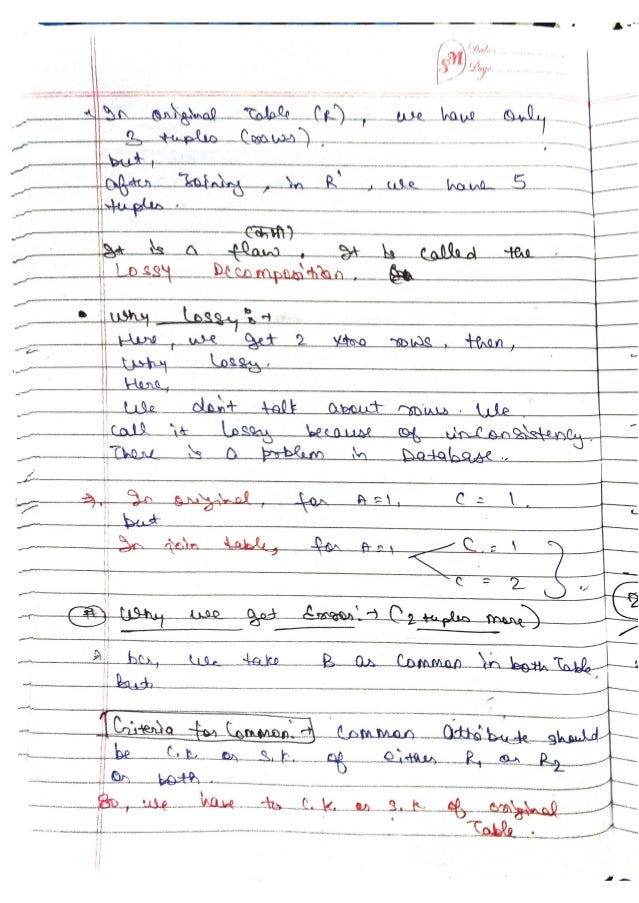 SM Date :
Page :
In original Table (R), we have only
3 tuples (rows).
but,
After Joining, in R', we have 5
tuples.
(कमी)
It is a flaw. It is called the
Lossy Decomposition.
• Why Lossy :→
Here, we get 2 xtra rows. then,
Why Lossy.
Here,
We don't talk about rows. We
call it lossy because of inconsistency.
There is a problem in Database..
⇒. In original, for A = 1, C = 1.
but
In join table, for A = 1 C = 1
C = 2
(#) Why we get Error :→ (2 tuples more)
bcz, we take B as common in both Table,
But,
Criteria for Common :→ Common attribute should
be C.K. or S.K. of either R1 or R2
or both.
So, we have to C.K. or S.K of original
Table.